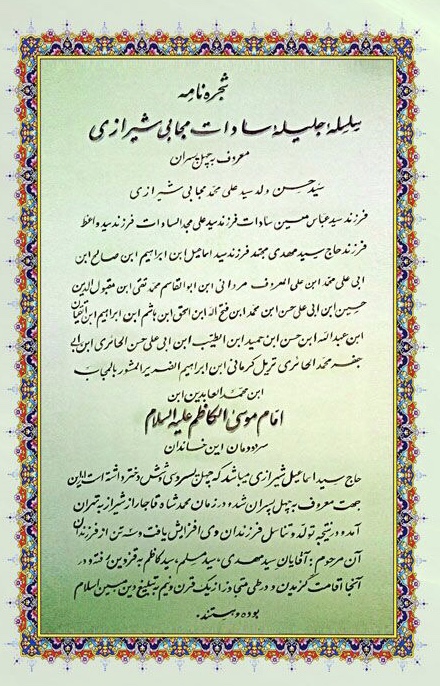 شجره نامه
سلسله جلیله سادات مجابی شیرازی
معروف به چهل پسران
سید حسن ولد سید علی محمد مجابی شیرازی
فرزند سید عباس معین سادات فرزند سید علی مجد السادات فرزند سید واعظ
فرزند حاج سید مهدی مجتهد فرزند سید اسماعیل ابن ابراهیم ابن صالح ابن
ابی علی محمد ابن علی المعروف مردانی ابن ابوالقاسم محمد تقی ابن مقبول الدین
حسین ابن ابی علی حسن ابن محمد ابن فتح الله ابن اسحق ابن هاشم ابن ابراهیم ابن
ابن عبدالله ابن حسن ابن حمید ابن الطیب ابن ابی علی حسن الحائری ابن ابی
جعفر محمد الحائری نزیل کرمانی ابن ابراهیم الضریر المشهور بالمجاب
ابن محمد العابدین ابن
امام موسی الکاظم علیه السلام
سردودمان این خاندان
حاج سید اسماعیل شیرازی میباشد که چهل پسر و سی و شش دختر داشته است باین
جهت معروف به چهل پسران شده و در زمان محمد شاه قاجار از شیراز به تهران
آمد و در نتیجه تولد و تناسل فرزندان وی افزایش یافت و سه تن از فرزندان
آن مرحوم : آقایان سید مهدی ، سید مسلم ، سید کاظم به قزوین رفته و در
آنجا اقامت گزیدند و در طی متجاوز از یک قرن و نیم به تبلیغ دین مبین اسلام
بوده و هستند .